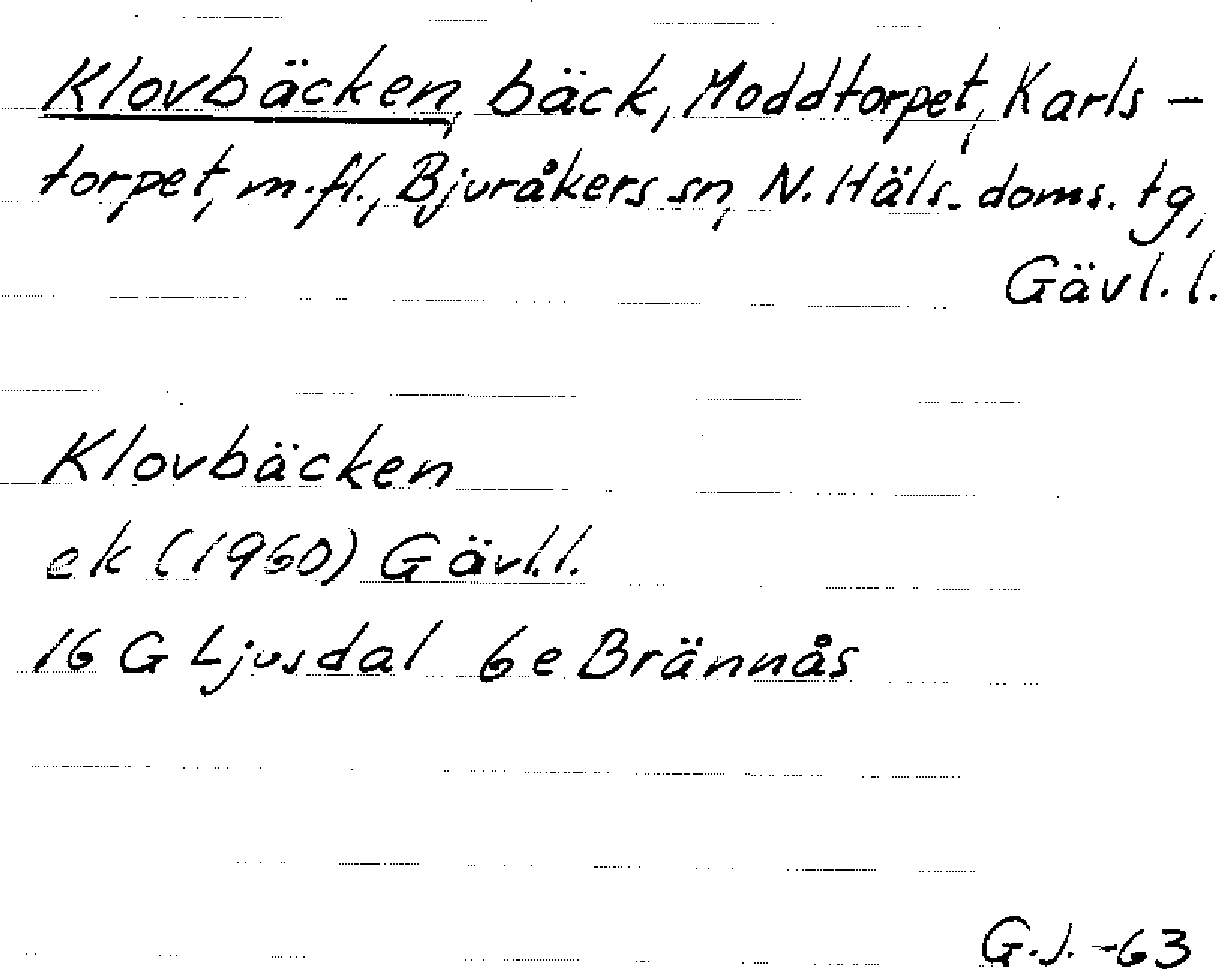 Klovbäcken, bäck, Moddtorpet, Karls-
torpet, m.fl., Bjuråkers sn, N. Häls. doms. tg,
Gävl. l.
Klovbäcken
ek (1960) Gävl.l.
16 G Ljusdal 6e Brännås
G.J. -63